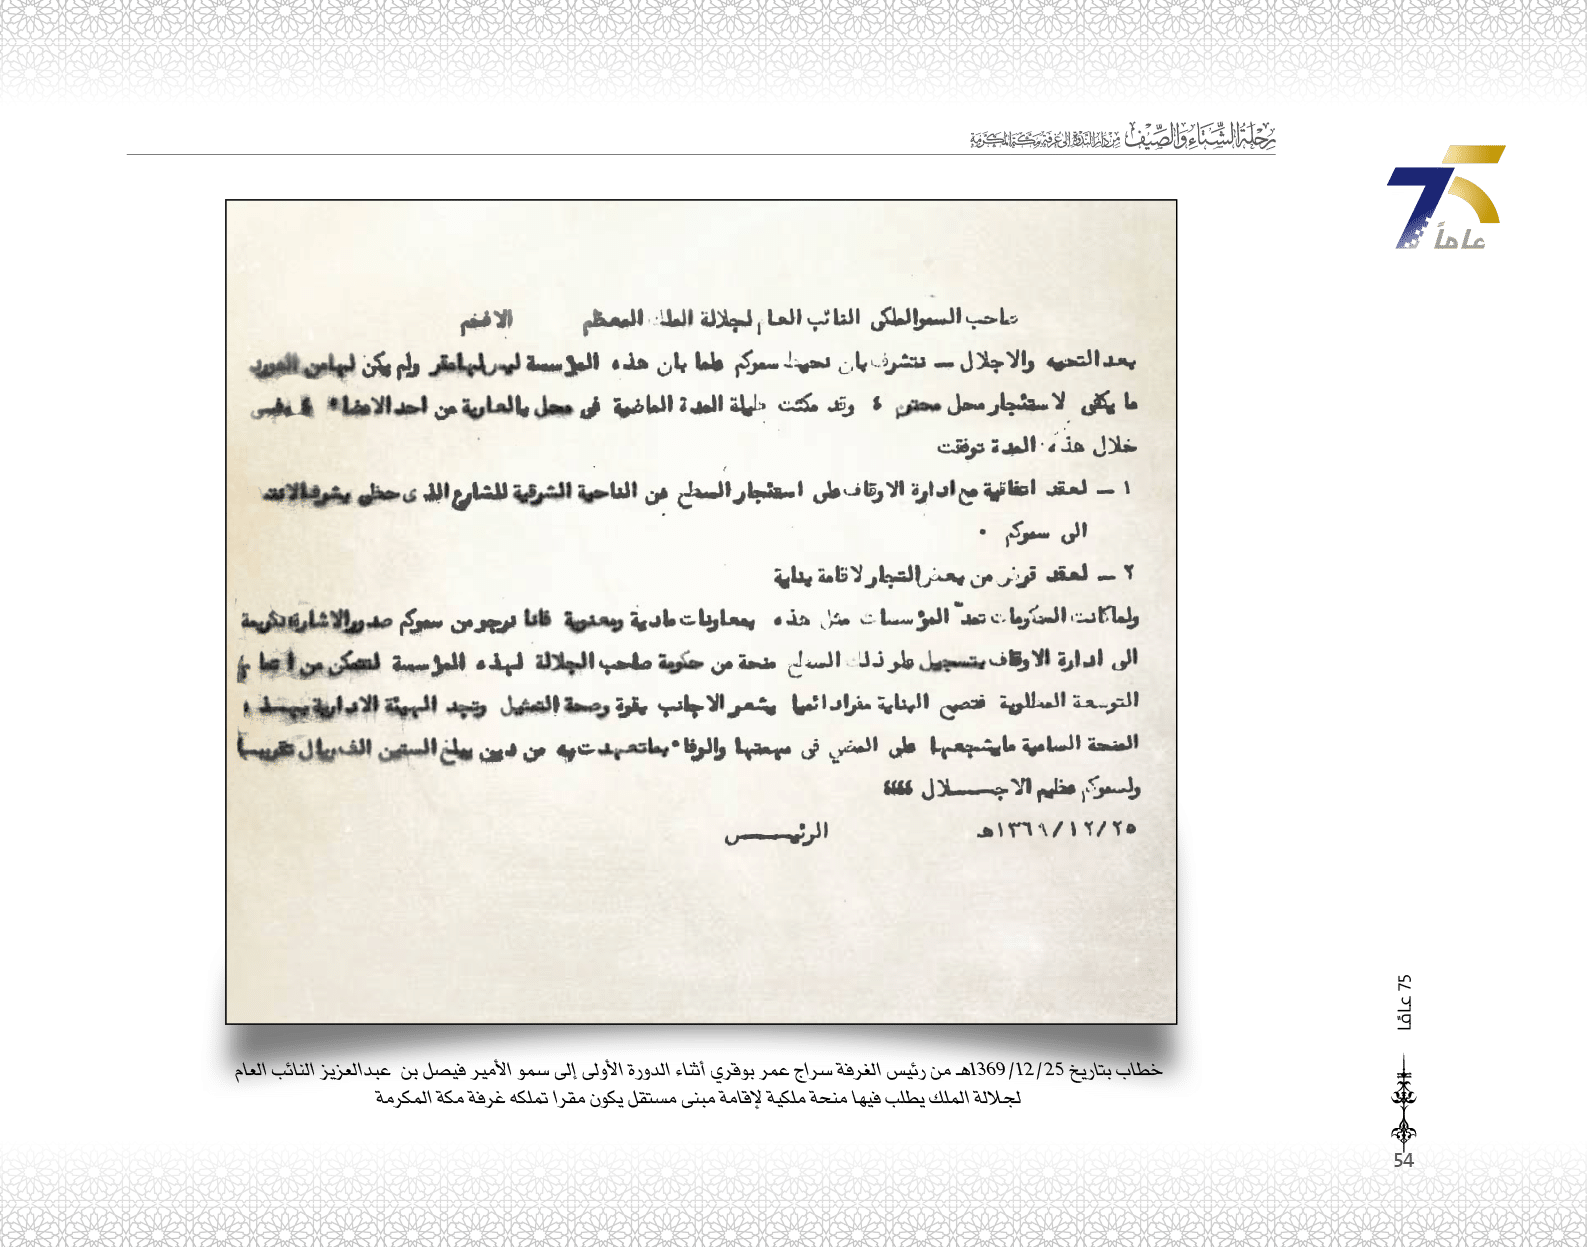 رحلة الشتاء والصيف من دار الندوة إلى غرفة مكة المكرمة
75
عاماً
صاحب السمو الملكى النائب العام لجلالة الملك المعظم الافخم
بعد التحيه والاجلال — نتشرف بان نحيط سموكم علما بان هذه المؤسسة ليس لها مقر ولم يكن لها من المورد
ما يكفى لاستئجار محل محترم ، وقد مكثت طيلة المدة الماضية فى محل بالعارية من احد الاعضاء
خلال هذه المدة توفقت
١ — لعقد اتفاقية مع ادارة الاوقاف على استئجار السطح من الناحية الشرقية للشارع الذى حظى بشرف الانتساب
الى سموكم .
٢ — لعقد قرض من بعض التجار لاقامة بناية
ولما كانت الحكومات تمدّ المؤسسات مثل هذه بمعاونات مادية ومعنوية فانا نرجو من سموكم صدور الاشارة الكريمة
الى ادارة الاوقاف بتسجيل علو ذلك السطح منحة من حكومة صاحب الجلالة لهذه المؤسسة لتتمكن من اتمام
التوسعة المطلوبة فتصبح البناية مقرا دائميا يشعر الاجانب بقوة وصحة التمثيل وتجد الهيئة الادارية بهذه
المنحة السامية ما يشجعها على المضي فى مهمتها والوفاء بما تعهدت به من دين يبلغ الستين الف ريال تقريبا
ولسموكم عظيم الاجـــلال ،،،،
٢٥/١٢/١٣٦٩هـ الرئيـــس
خطاب بتاريخ 25/ 12/ 1369هـ من رئيس الغرفة سراج عمر بوقري أثناء الدورة الأولى إلى سمو الأمير فيصل بن عبدالعزيز النائب العام
لجلالة الملك يطلب فيها منحة ملكية لإقامة مبنى مستقل يكون مقرا تملكه غرفة مكة المكرمة
75 عامًا
54